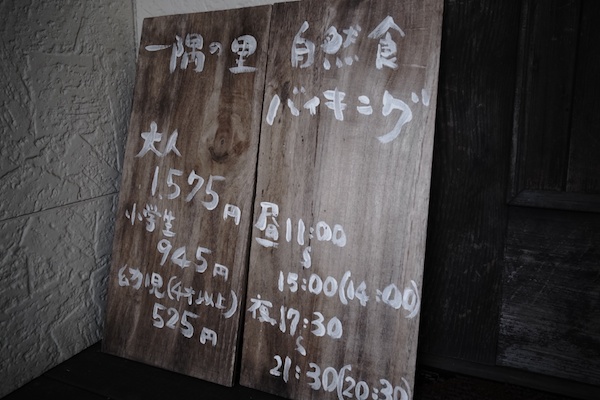 一隅の里 自然食
バイキング
大人
1,575円
小学生
945円
幼児(4才以上)
525円
昼11:00
〜
15:00(14:00)
夜17:30
〜
21:30(20:30)